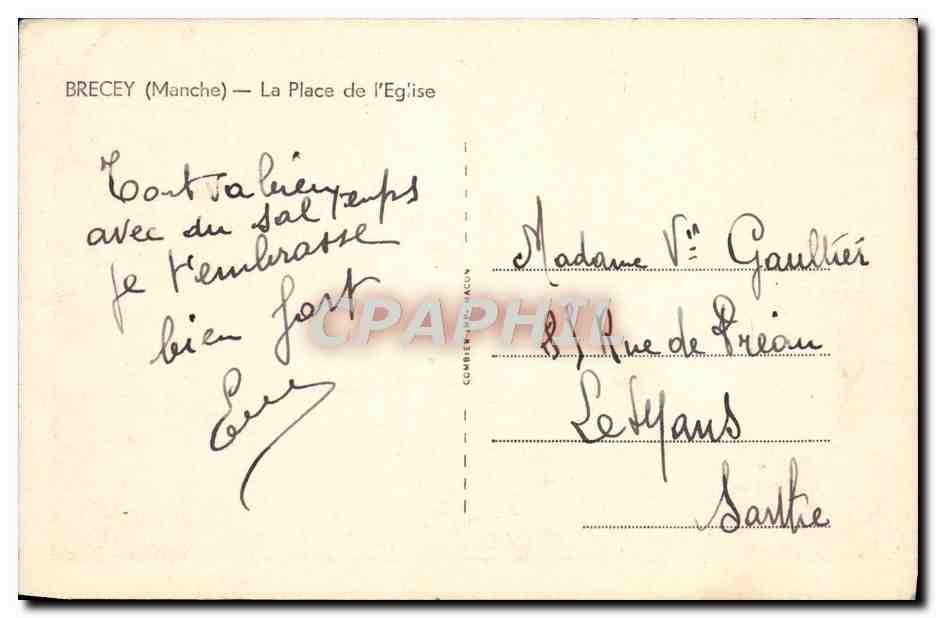 BRECEY (Manche) — La Place de l'Eglise
Tout va bien
avec du sal temps
je t'embrasse
bien fort
COMBIER IMP. MACON
CPAPHIL
Madame Vve Gaultier
Rue de Préau
Le Mans
Sarthe